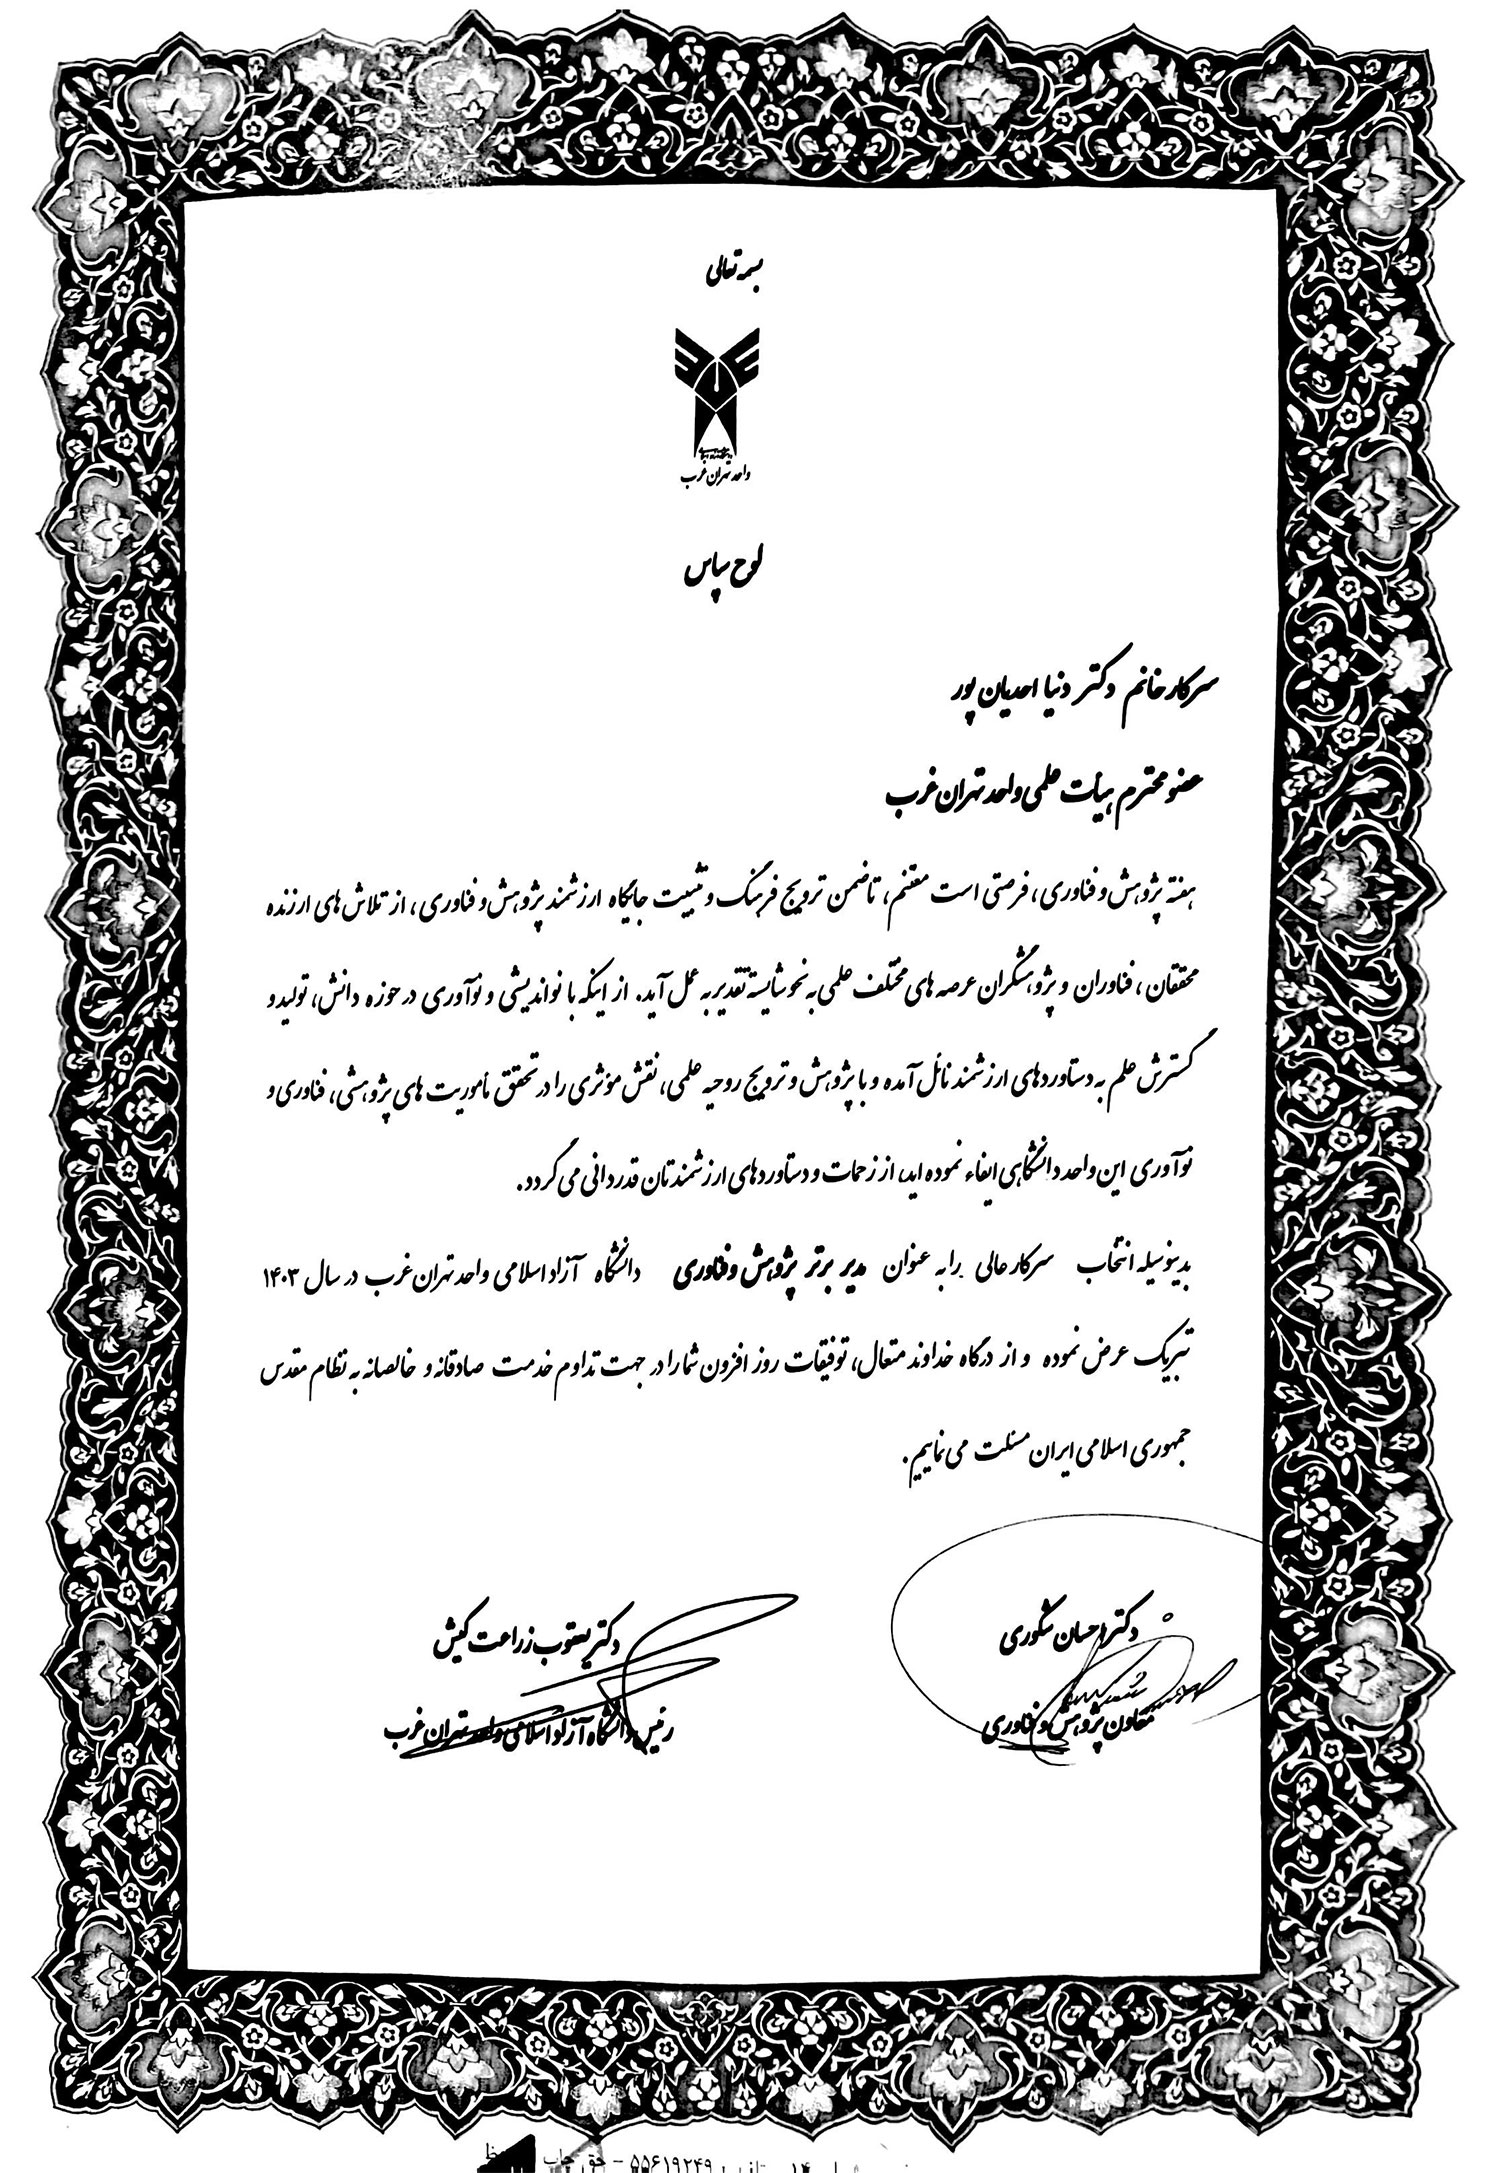 بسمه تعالی
واحد تهران غرب
لوح سپاس
سرکار خانم دکتر دنیا احدیان پور
عضو محترم هیأت علمی واحد تهران غرب
هفته پژوهش و فناوری، فرصتی است مغتنم، تا ضمن ترویج فرهنگ و تثبیت جایگاه ارزشمند پژوهش و فناوری، از تلاش های ارزنده
محققان، فناوران و پژوهشگران عرصه های مختلف علمی به نحو شایسته تقدیر به عمل آید. از اینکه با نواندیشی و نوآوری در حوزه دانش، تولید و
گسترش علم به دستاوردهای ارزشمند نائل آمده و با پژوهش و ترویج روحیه علمی، نقش مؤثری را در تحقق مأموریت های پژوهشی، فناوری و
نوآوری این واحد دانشگاهی ایفاء نموده اید، از زحمات و دستاوردهای ارزشمندتان قدردانی می گردد.
بدینوسیله انتخاب سرکار عالی را به عنوان مدیر برتر پژوهش و فناوری دانشگاه آزاد اسلامی واحد تهران غرب در سال ۱۴۰۳
تبریک عرض نموده و از درگاه خداوند متعال، توفیقات روز افزون شما را در جهت تداوم خدمت صادقانه و خالصانه به نظام مقدس
جمهوری اسلامی ایران مسئلت می نماییم.
دکتر احسان شکوری
معاون پژوهش و فناوری
دکتر یعقوب زراعت کیش
رئیس دانشگاه آزاد اسلامی واحد تهران غرب
۵۵۶۱۹۲۴۹ - حق چاپ